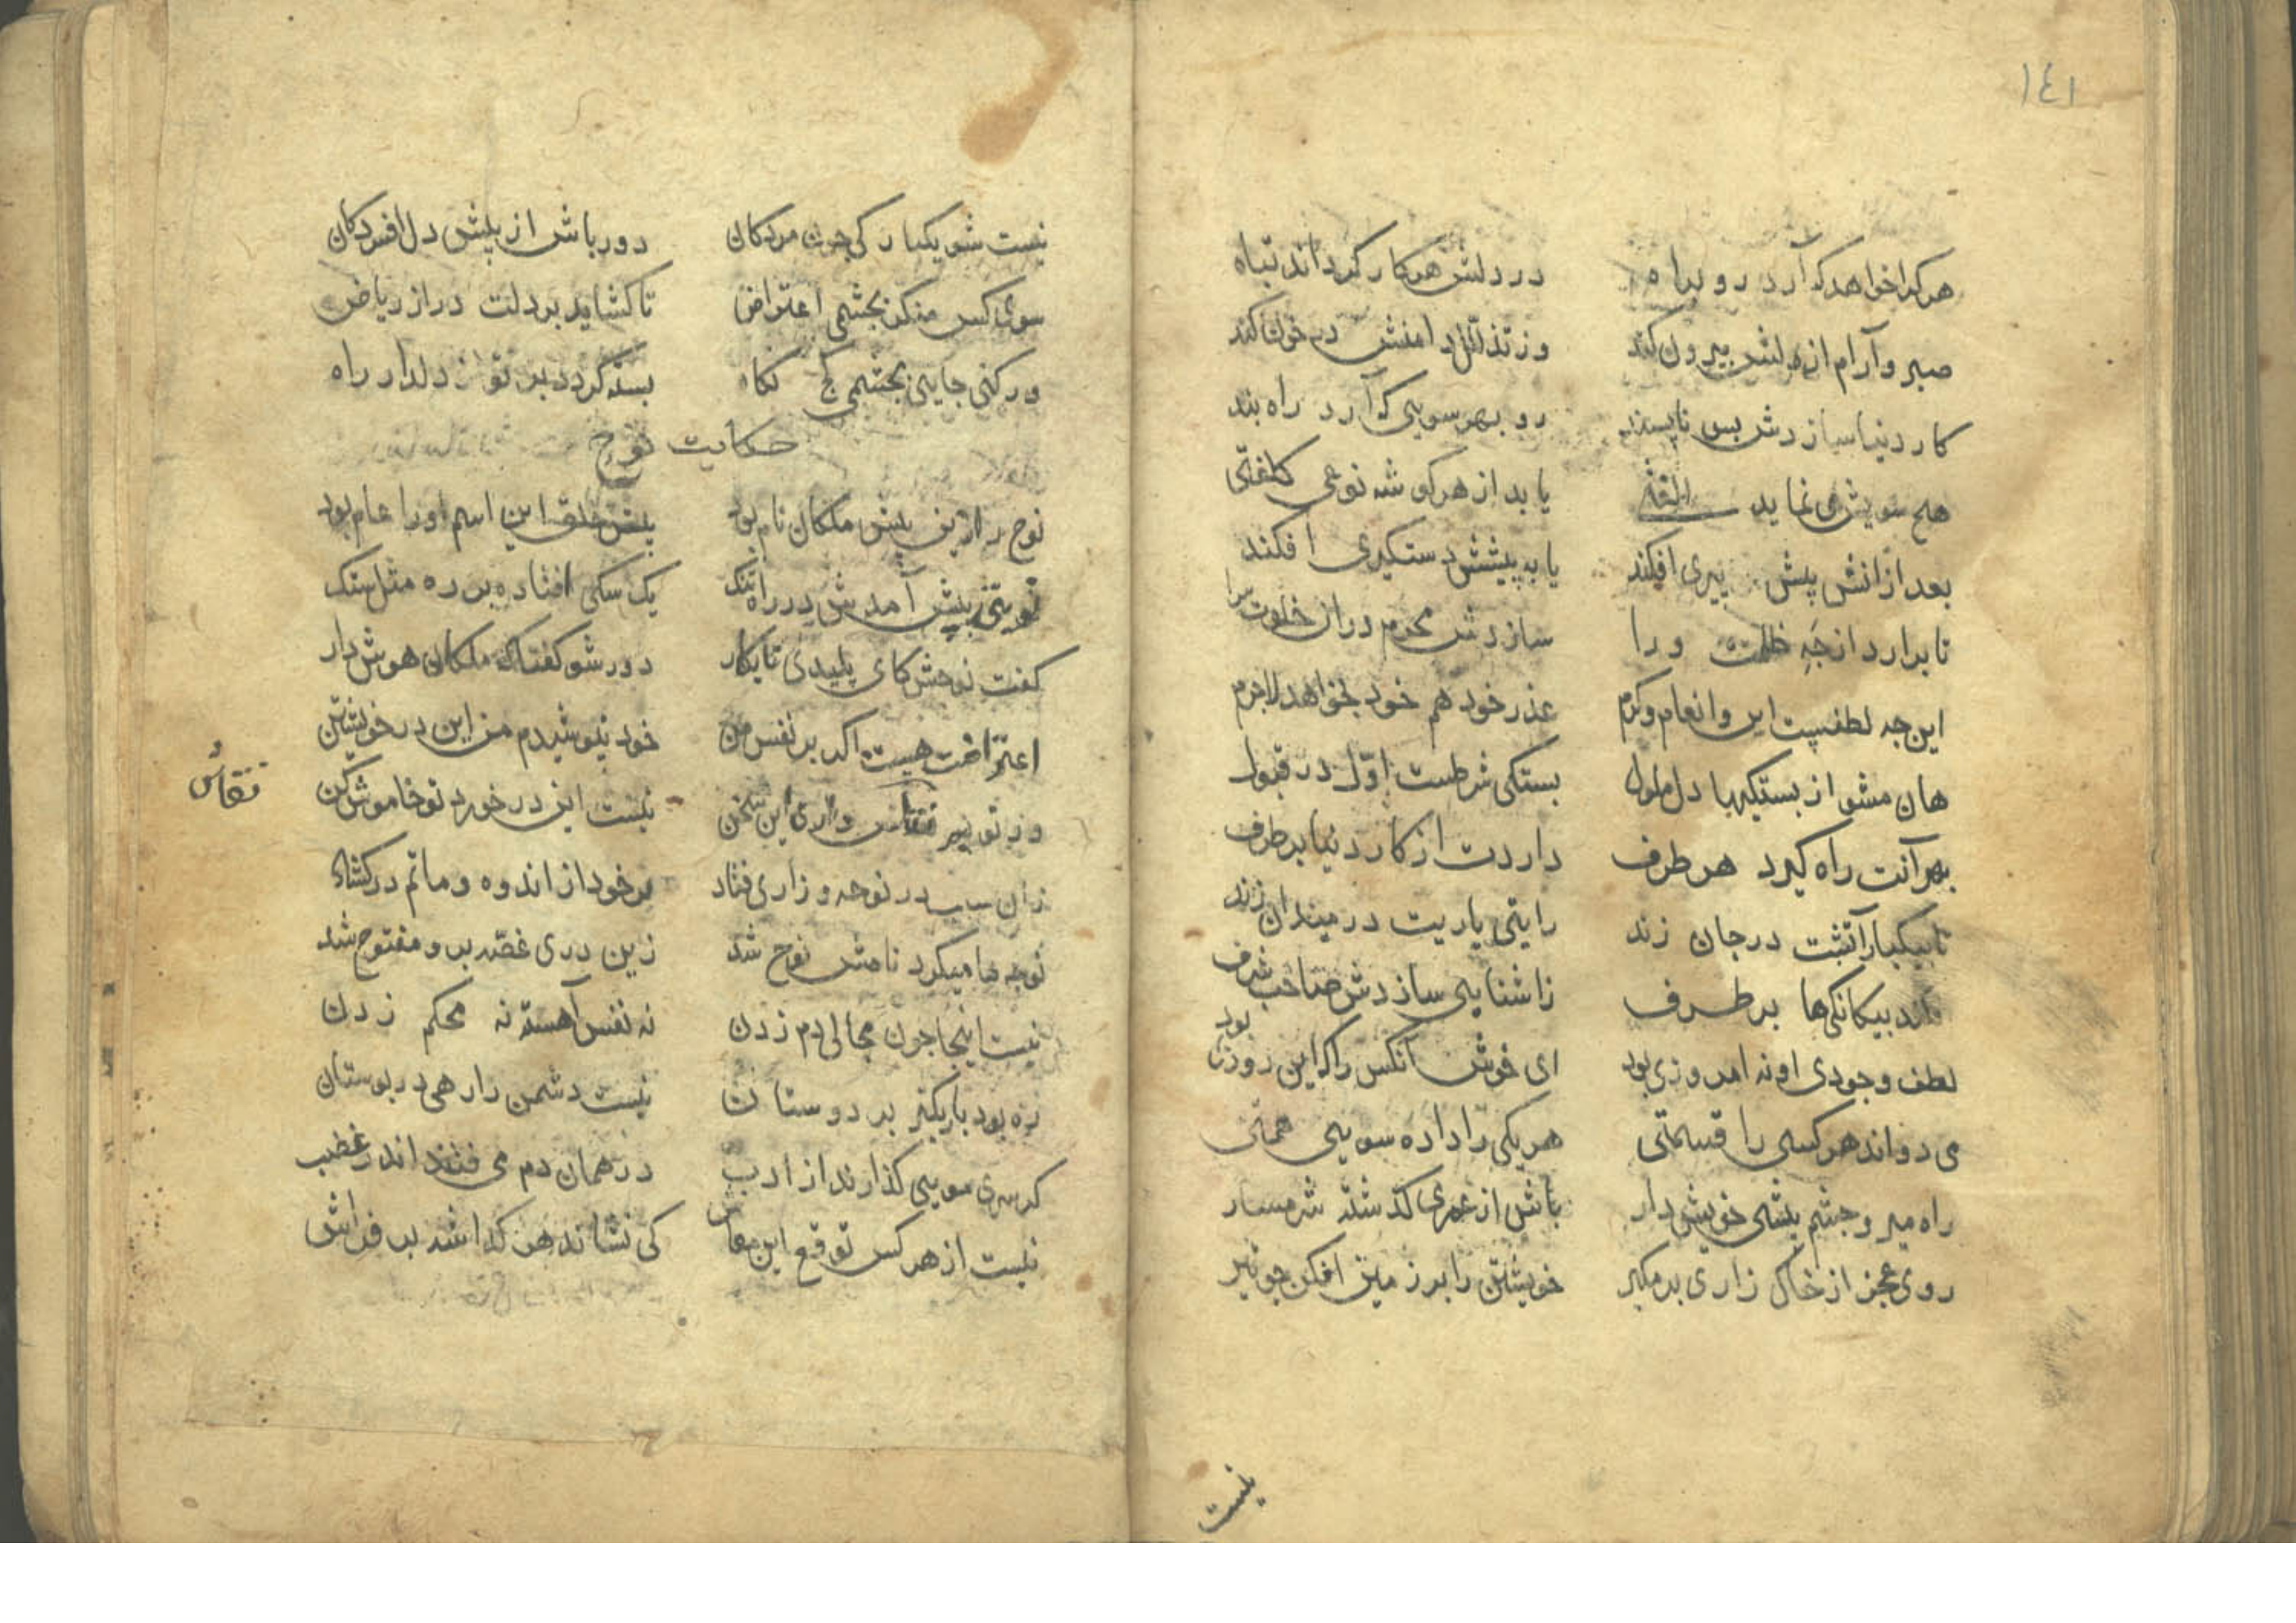 ١٤١
هرکرا خواهد که آرد رو براه در دلش هر کار کرداند تباه
صبر و آرام از دلش بیرون کند وز تذلل دامنش در خون کند
کار دنیا سازدش بس ناپسند رو بهر سویی که آرد راه بند
هیچ سویش می نماید الفتی یابد از هر کوشه نوعی کلفتی
بعد از انش پیش پیری افکند یا به پیشش دستکیری افکند
تا برارد از چه ظلمت ورا سازدش محرم دران خلوت سرا
این چه لطفیست این و انعام و کرم عذر خود هم خود بخواهد لاجرم
هان مشو از بستکیها دل ملول بستکی شرطست اول در قبول
بهر آنت راه کیرد هر طرف داردت از کار دنیا بر طرف
تا بیکبار آتشت در جان زند رایتی یاریت در میدان زند
بیکانکیها بر طرف زاشنایی سازدش صاحب شرف
لطف وجودی او نه امروزی بود ای خوش آنکس را که این روزی بود
می دواند هر کسی را قسمتی هر یکی را داده سویی همتی
راه میر و چشم پشی خویش دار باش از عمری کذشته شرمسار
روی عجز از خاک زاری بر مکیر خویشتن را بر زمین افکن چو تیر
نیست
نیست شو یکبارکی چون مردکان دور باش از پیش دل افسردکان
سوی کس منکر بچشمی اعتراض تا کشاید بر دلت در از ریاض
ور کنی جایی بچشمی کج نکاه بسته کردد بر تو از دلدار راه
حکایت نوح
نوح را زین پیش ملکان نام بود پیش خلق این اسم او را عام بود
نوبتی پیش آمدش در راه تنک یک سکی افتاده بر ره مثل سنک
کفت نوحش کای پلیدی نابکار دور شو کفتا که ملکان هوش دار
اعتراضت هست اکر بر نفس من خود نپوشیدم من این در خویشتن
ور تو بر نقاش داری این سخن نیست این در خورد تو خاموش کن
نقاش
زان سبب در نوحه و زاری فتاد بر خود از اندوه و ماتم در کشاد
نوحه ها میکرد نامش نوح شد زین دری غصه برو مفتوح شد
نیست اینجا چون مجالی دم زدن نه نفس آهسته نه محکم زدن
ره بود باریکتر بر دوستان نیست دشمن را رهی در بوستان
کر سری مویی کذارند از ادب در همان دم می فتند اندر غضب
نیست از هر کس توقع این معاش کی نشاند هر کدا شه بر فراش